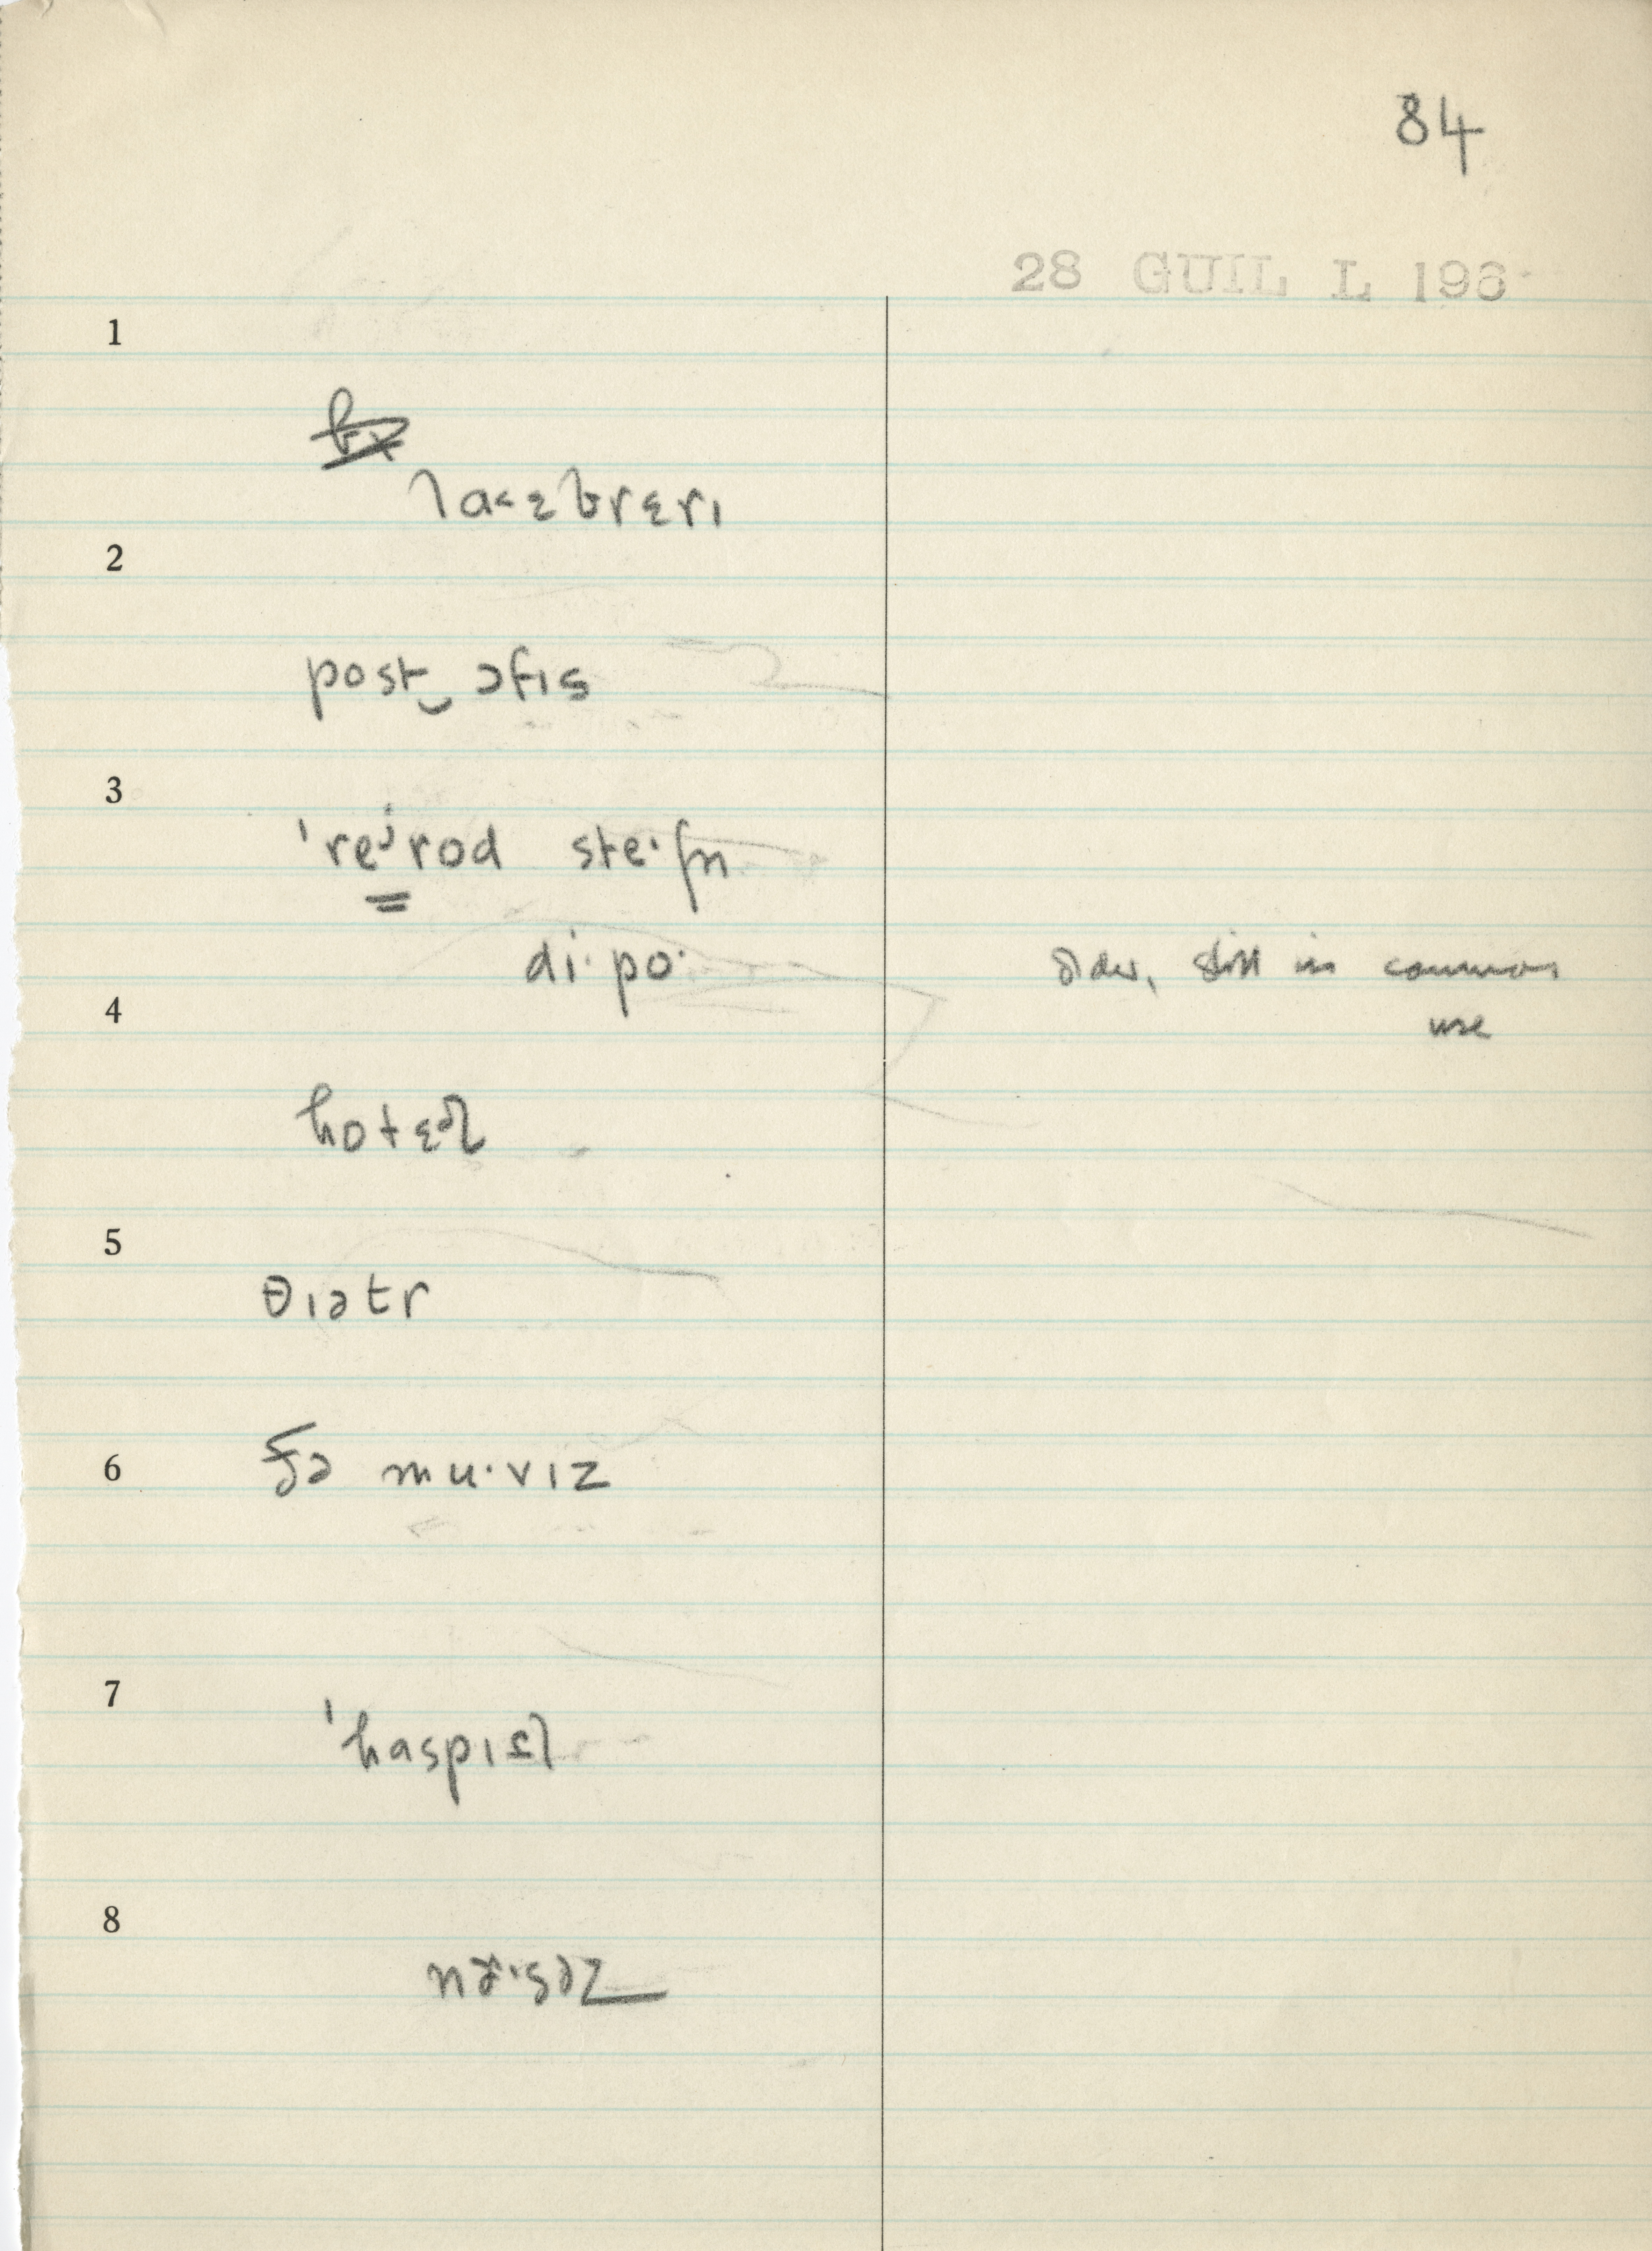 84
28 GUIL L 196
1
laᵋbrɛrɪ
2
post‿ɔfɪs
3
ˈreʲrod steˑʃn
diˑpoˑ
older, still in common
4
use
hotɛəl
5
θɪətr
6
ðə muˑvɪz
7
ˈhaspɪɾl
8
nɚˑsəz